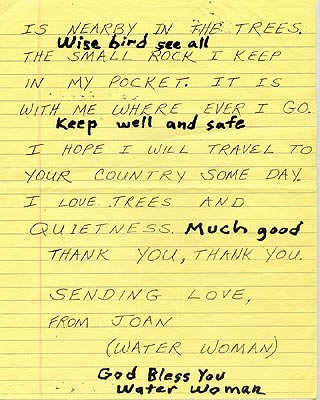 IS NEARBY IN THE TREES.
Wise bird see all
THE SMALL ROCK I KEEP
IN MY POCKET. IT IS
WITH ME WHERE EVER I GO.
Keep well and safe
I HOPE I WILL TRAVEL TO
YOUR COUNTRY SOME DAY.
I LOVE TREES AND
QUIETNESS. Much good
THANK YOU, THANK YOU.
SENDING LOVE,
FROM JOAN
(WATER WOMAN)
God Bless You
Water Woman